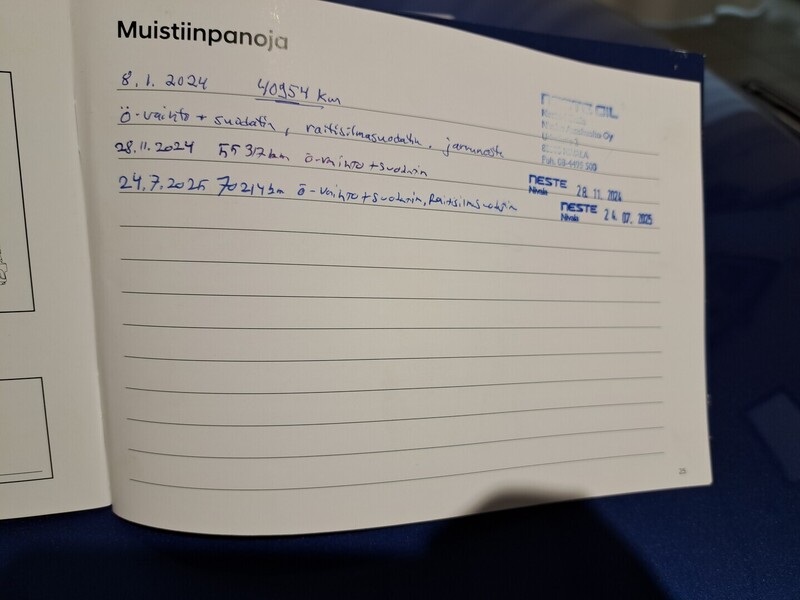 Muistiinpanoja
8.1.2024 40954 km
Ö-vaihto + suodatin, raitisilmasuodatin, jarruneste
28.11.2024 55317 km Ö-vaihto + suodatin
24.7.2025 70214 km Ö-vaihto + suodatin, Raitisilmasuodatin
OIL
Oy
Puh. 08-4493 500
NESTE
Nivala 28. 11. 2024
NESTE
Nivala 24. 07. 2025
25